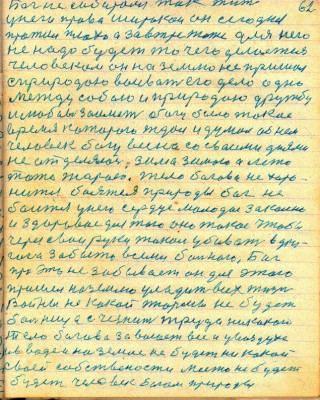 62
Бог не собирался так жить
у него права широкой он сегодня
против плохо а завтра тоже для него
не надо будет то чего делается
человеком он на землю не пришел
с природою воевать его дело одно
между собою и природою дружбу
и любовь богу было такое
время которого ждал и думал об нем
человек богу весна со своими днями
не отделяла, зима зимою а лето
тоже тело богово не
боится природы бог не
боится у него сердце молодое закалено
и здоровое для того оно такое чтобы
через свои руки током убивать в друг
забыто всеми больного, Бог
про это не забывает он для этого
пришел на землю всех
Войны не какой тюрьмы не будет
больница с труда никакого
Тело богово завоюет все и в воздухе
и в воде и на земле не будет ни какой
своей собственности место не будет
будет человек Богом природы